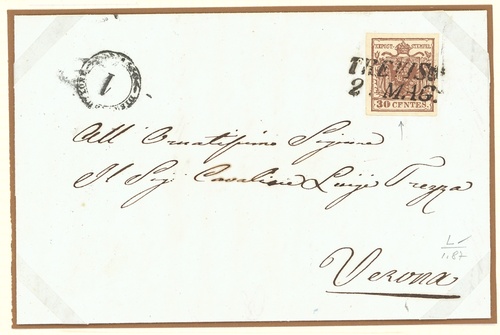 KKPOST-STEMPEL
TREVISO
2 MAG.
30 CENTES.
1
All Ornatissimo Signore
Il Sig. Cavaliere Luigi Trezza
Verona
1.87